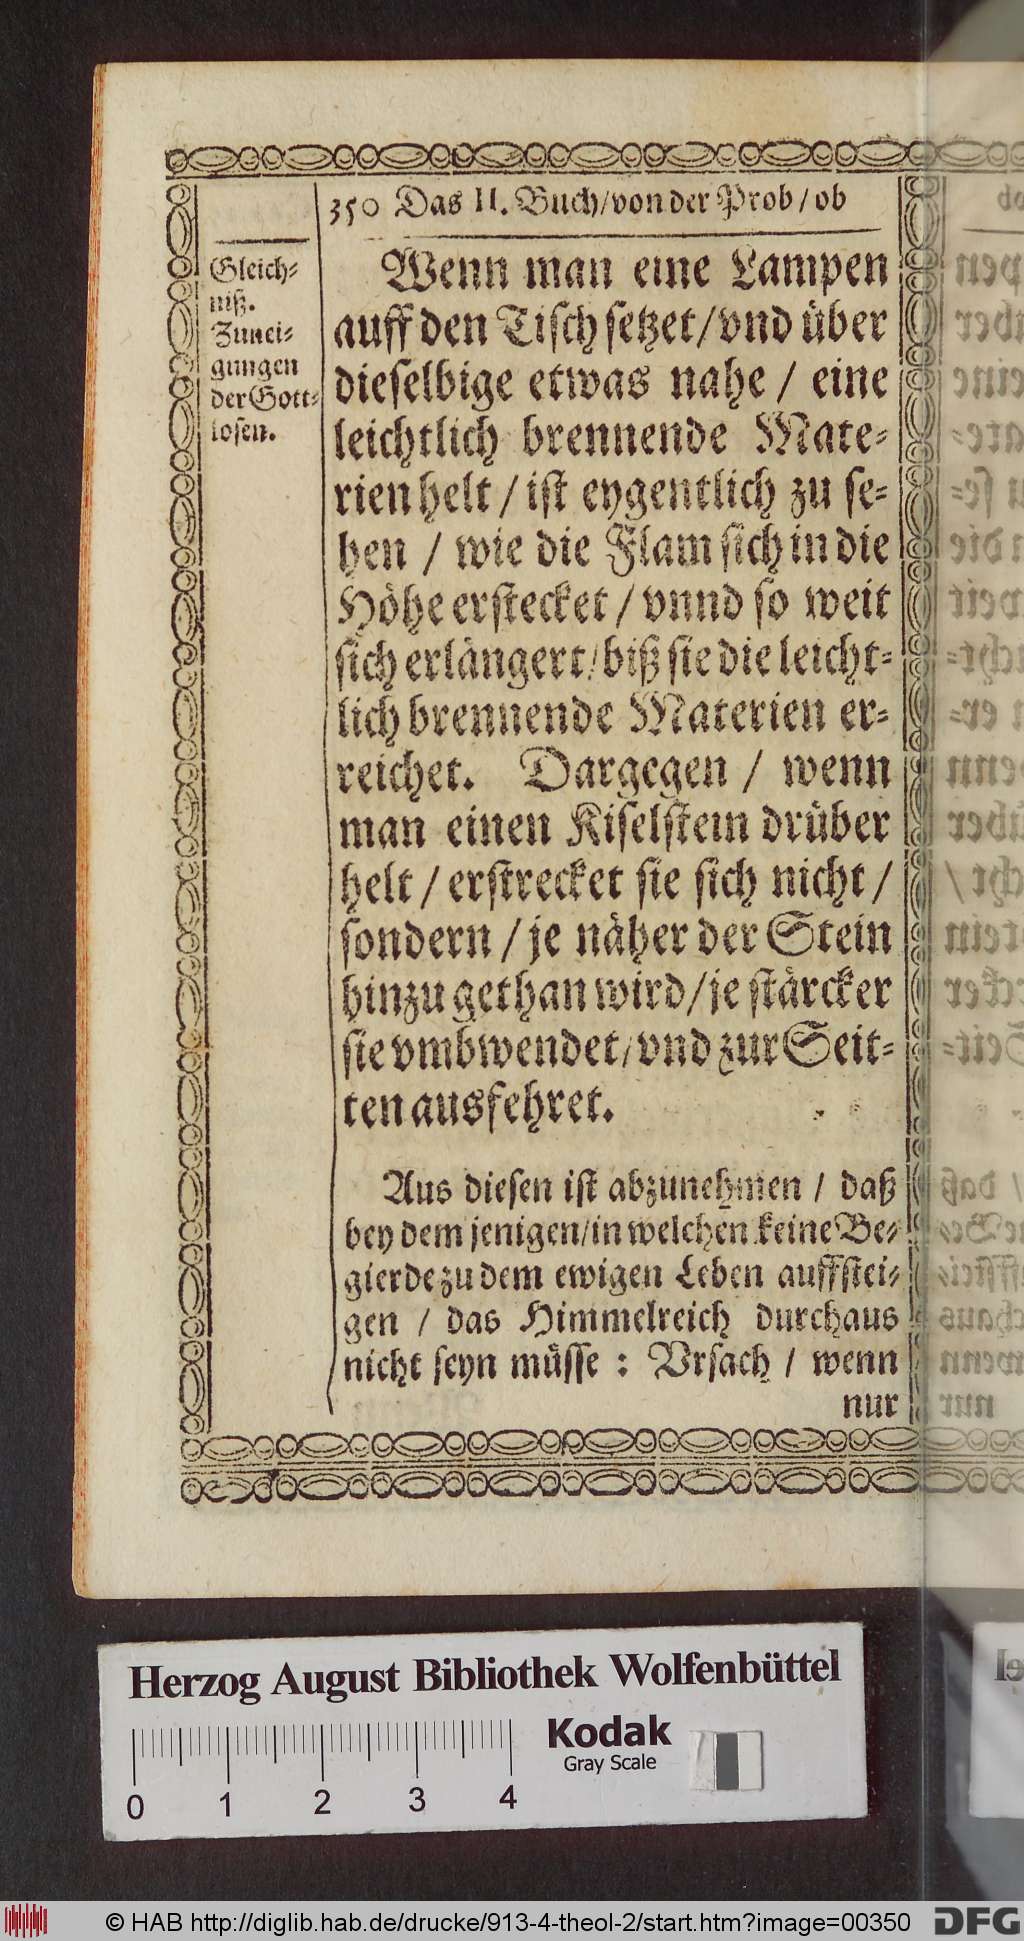 350 Das II. Buch/von der Prob/ob
Gleich-
niß.
Zunei-
gungen
der Gott-
losen.
Wenn man eine Lampen
auff den Tisch setzet/vnd über
dieselbige etwas nahe / eine
leichtlich brennende Mate-
rien helt / ist eygentlich zu se-
hen / wie die Flam sich in die
Höhe erstecket / vnnd so weit
sich erlängert/biß sie die leicht-
lich brennende Materien er-
reichet. Dargegen / wenn
man einen Kiselstein drüber
helt / erstrecket sie sich nicht /
sondern / je näher der Stein
hinzu gethan wird/je stärcker
sie vmbwendet/vnd zur Seit-
ten ausfehret.
Aus diesen ist abzunehmen / daß
bey dem jenigen/in welchen keine Be-
gierde zu dem ewigen Leben auffstei-
gen / das Himmelreich durchaus
nicht seyn müsse : Vrsach / wenn
nur
Herzog August Bibliothek Wolfenbüttel
Kodak
Gray Scale
0 1 2 3 4
© HAB http://diglib.hab.de/drucke/913-4-theol-2/start.htm?image=00350
DFG